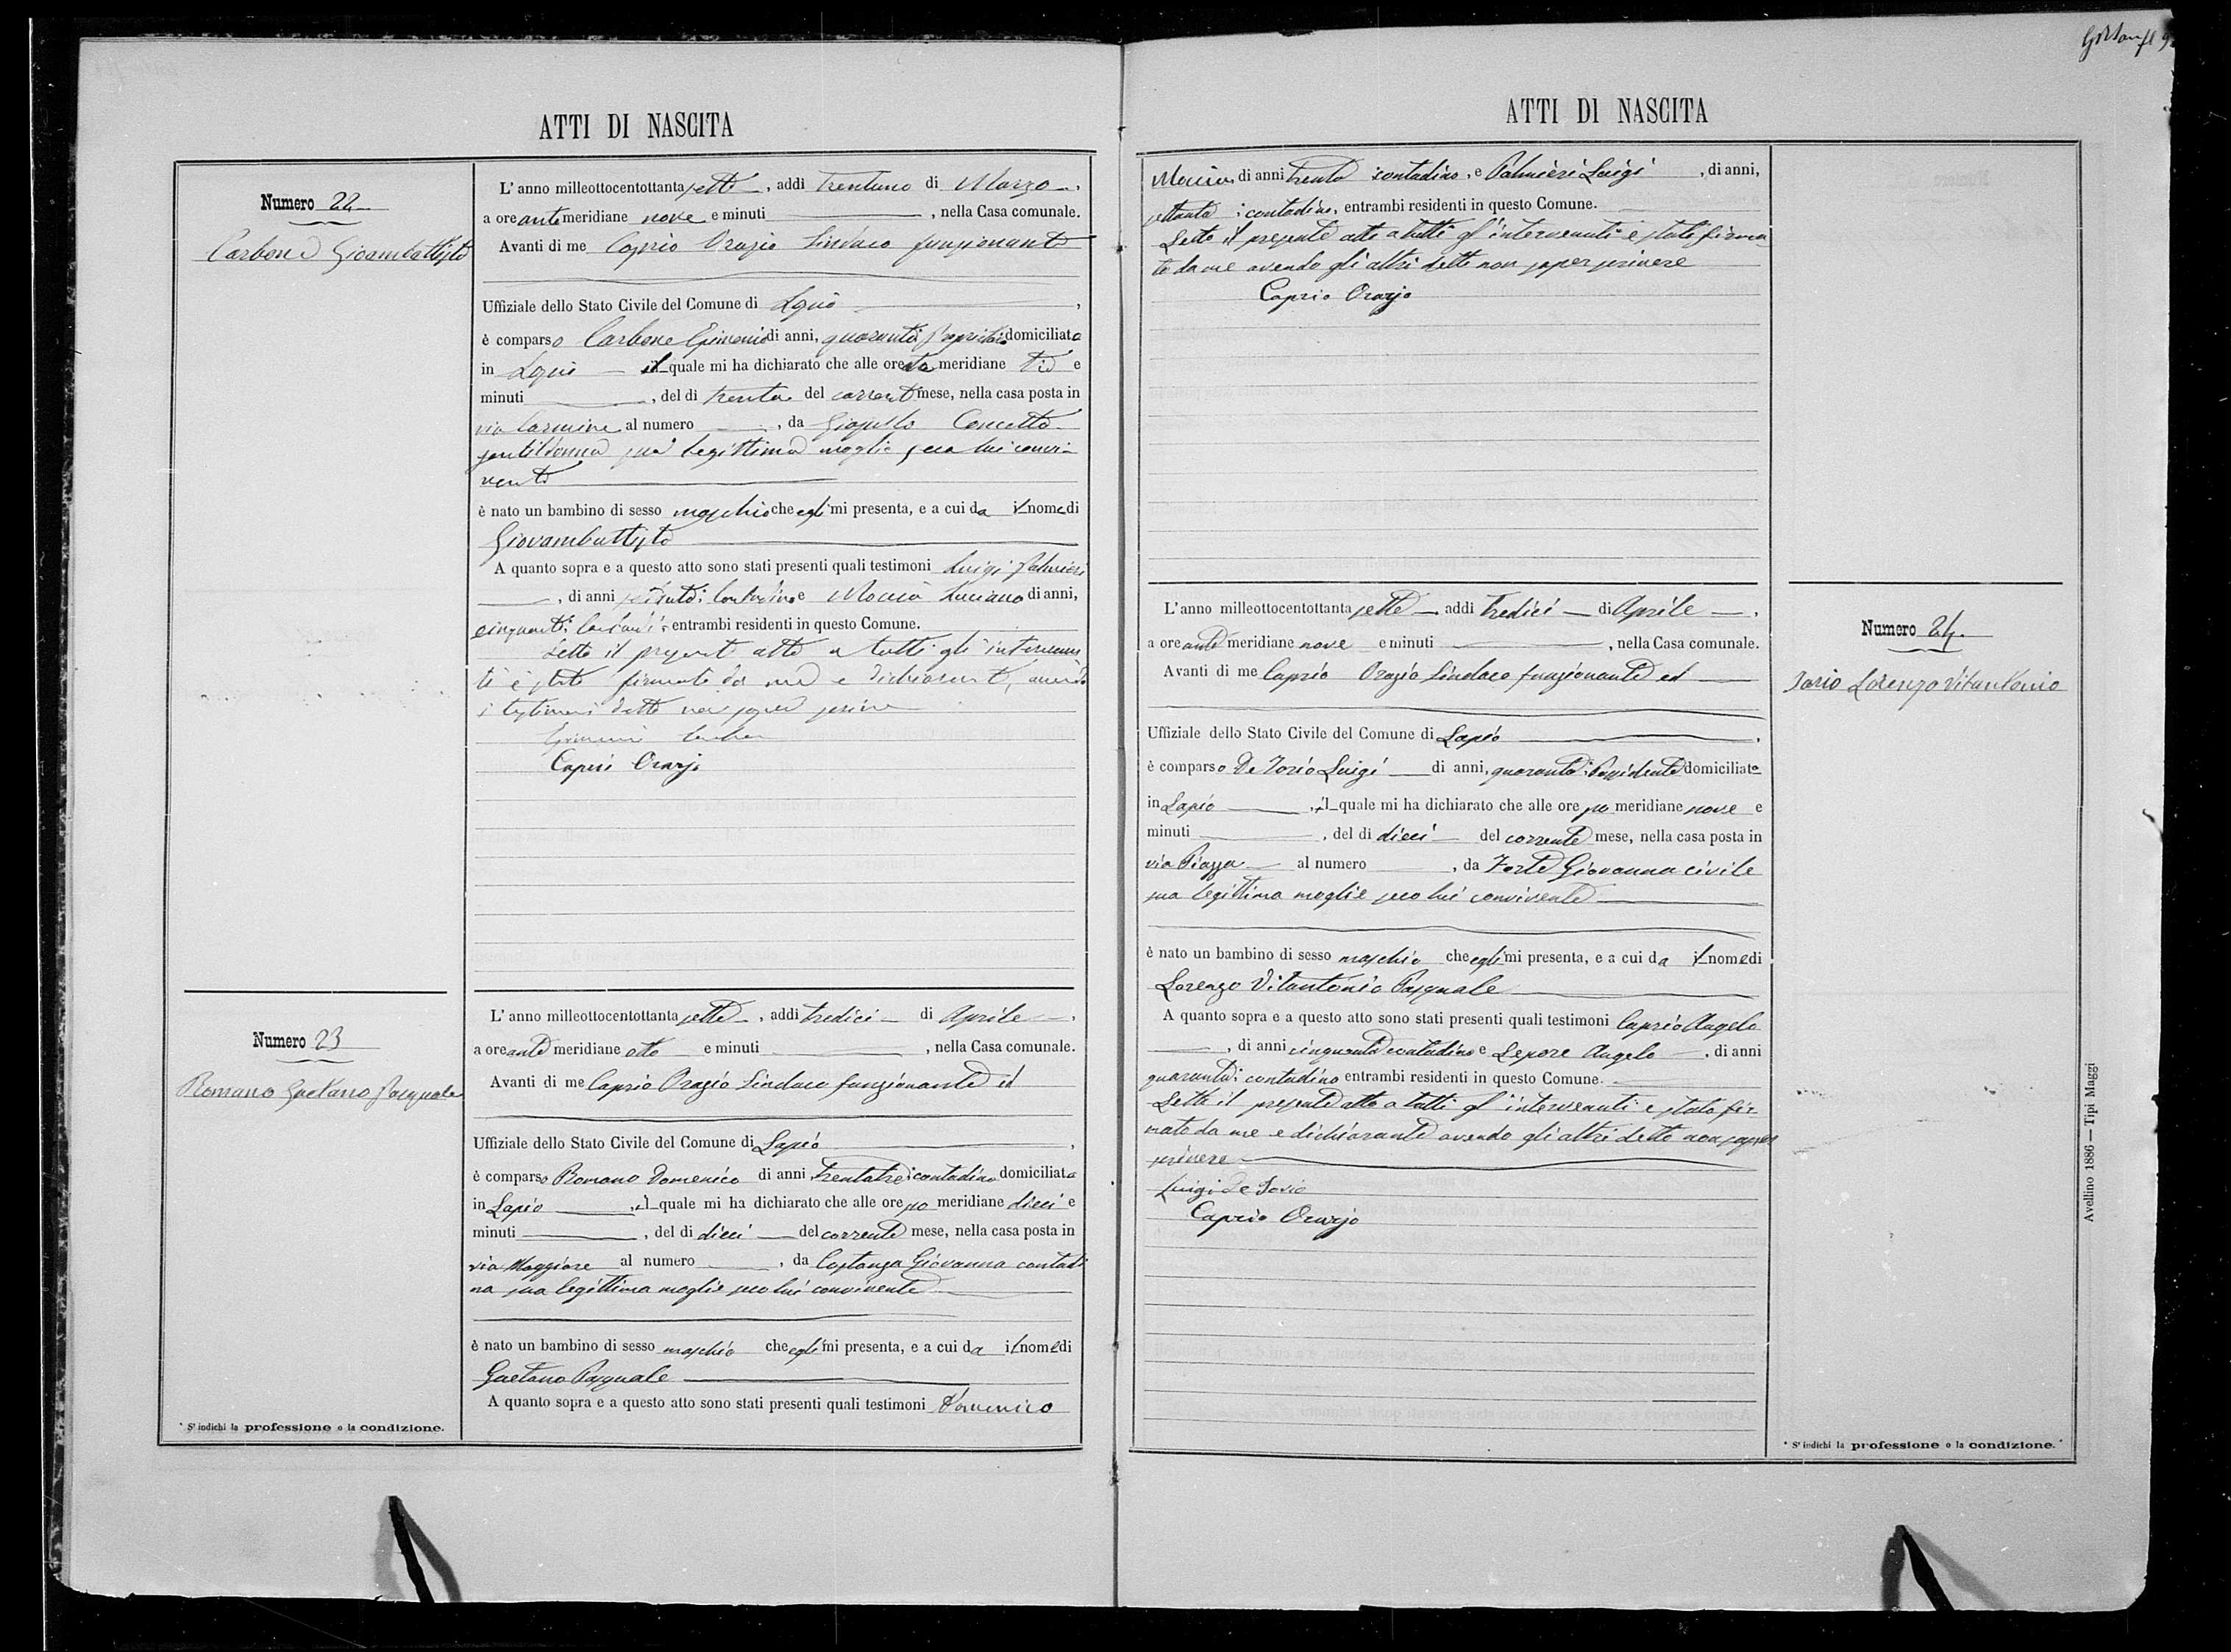 ATTI DI NASCITA
Numero 22
Carbone Giovambattista
L'anno milleottocentottantasette, addì trentuno di Marzo,
a ore antemeridiane nove e minuti , nella Casa comunale.
Avanti di me Caprio Orazio Sindaco funzionante
Uffiziale dello Stato Civile del Comune di Lapio,
è comparso Carbone di anni, quaranta domiciliato
in Lapio il quale mi ha dichiarato che alle ore meridiane e
minuti , del dì trenta del corrente mese, nella casa posta in
via Carmine al numero , da Concetta
gentildonna sua legittima moglie seco lui convi-
vente
è nato un bambino di sesso maschio che egli mi presenta, e a cui da il nome di
Giovambattista
A quanto sopra e a questo atto sono stati presenti quali testimoni Luigi Palmieri
, di anni contadino e Moccia Luciano di anni,
cinquanta entrambi residenti in questo Comune.
Letto il presente atto a tutti gli intervenu
ti è stato firmato da me e dichiarante, avendo
i testimoni detto non saper scrivere
Caprio Orazio
Numero 23
Romano Gaetano Pasquale
L'anno milleottocentottantasette, addì tredici di Aprile,
a ore ante meridiane otto e minuti , nella Casa comunale.
Avanti di me Caprio Orazio Sindaco funzionante ed
Uffiziale dello Stato Civile del Comune di Lapio,
è comparso Romano Domenico di anni trentatre contadino domiciliato
in Lapio, il quale mi ha dichiarato che alle ore po meridiane dieci e
minuti , del dì dieci del corrente mese, nella casa posta in
via Maggiore al numero , da Costanza Giovanna contadi
na sua legittima moglie seco lui convivente
è nato un bambino di sesso maschio che egli mi presenta, e a cui da il nome di
Gaetano Pasquale
A quanto sopra e a questo atto sono stati presenti quali testimoni Domenico
* S'indichi la professione o la condizione.
ATTI DI NASCITA
Moccia, di anni trenta contadino, e Palmieri Luigi , di anni,
settanta contadino, entrambi residenti in questo Comune.
Letto il presente atto a tutti gl'intervenuti è stato firma
to da me avendo gli altri detto non saper scrivere
Caprio Orazio
Numero 24.
Iorio Lorenzo Vitantonio
L'anno milleottocentottantasette, addì tredici di Aprile,
a ore ante meridiane nove e minuti , nella Casa comunale.
Avanti di me Caprio Orazio Sindaco funzionante ed
Uffiziale dello Stato Civile del Comune di Lapio,
è comparso De Iorio Luigi di anni, quaranta Possidente domiciliato
in Lapio, il quale mi ha dichiarato che alle ore po meridiane nove e
minuti , del dì dieci del corrente mese, nella casa posta in
via Piazza al numero , da Forte Giovanna civile
sua legittima moglie seco lui convivente
è nato un bambino di sesso maschio che egli mi presenta, e a cui da il nome di
Lorenzo Vitantonio Pasquale
A quanto sopra e a questo atto sono stati presenti quali testimoni Caprio Angelo
, di anni cinquanta contadino e Lepore Angelo, di anni
quaranta contadino entrambi residenti in questo Comune.
Letto il presente atto a tutti gl'intervenuti è stato fir-
mato da me e dichiarante avendo gli altri detto non saper
scrivere
Luigi De Iorio
Caprio Orazio
* S'indichi la professione o la condizione.
Avellino 1886 — Tipi Maggi